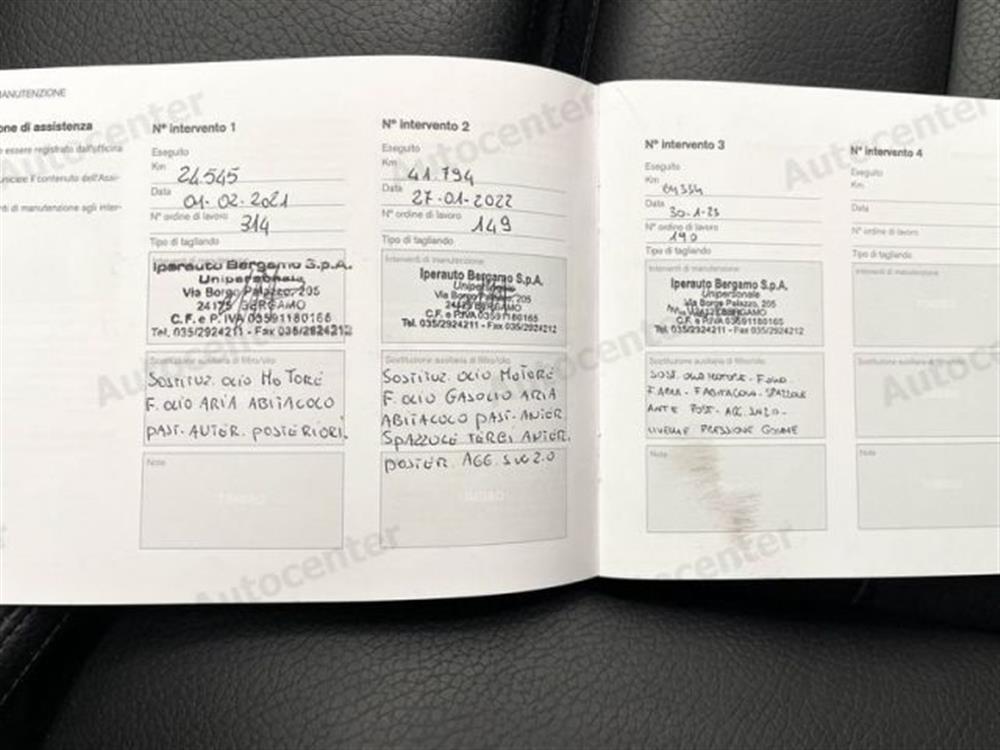 MANUTENZIONE
one di assistenza
essere registrato dall'officina
unicare il contenuto dell'Assi-
nti di manutenzione agli inter-
N° intervento 1
Eseguito
Km 24.545
Data 01-02-2021
N° ordine di lavoro
314
Tipo di tagliando
Iperauto Bergamo S.p.A.
Unipersonale
Via Borgo Palazzo, 205
24125 BERGAMO
C.F. e P. IVA 03591180165
Tel. 035/2924211 - Fax 035/2924212
Sostituzione ausiliaria di filtro/olio
SOSTITUZ. OLIO MOTORE
F. OLIO ARIA ABITACOLO
PAST. ANTER. POSTERIORI.
Note
N° intervento 2
Eseguito
Km 41.794
Data 27-01-2022
N° ordine di lavoro
149
Tipo di tagliando
Interventi di manutenzione
Iperauto Bergamo S.p.A.
Unipersonale
Via Borgo Palazzo, 205
24125 BERGAMO
C.F. e P.IVA 03591180165
Tel. 035/2924211 - Fax 035/2924212
Sostituzione ausiliaria di filtro/olio
SOSTITUZ. OLIO MOTORE
F. OLIO GASOLIO ARIA
ABITACOLO PAST. ANTER.
SPAZZOLE TERGI ANTER.
POSTER. AGG. SW 2.0
Note
N° intervento 3
Eseguito
Km 64354
Data
30-1-23
N° ordine di lavoro
190
Tipo di tagliando
Interventi di manutenzione
Iperauto Bergamo S.p.A.
Unipersonale
Via Borgo Palazzo, 205
24125 BERGAMO
C.F. e P.IVA 03591180165
Tel. 035/2924211 - Fax 035/2924212
Sostituzione ausiliaria di filtro/olio
SOST. OLIO MOTORE - F. OLIO -
F. ARIA - F. ABITACOLO - SPAZZOLE
ANTE POST - AGG. SW 2.0 -
LIVELLI E PRESSIONE GOMME
Note
N° intervento 4
Eseguito
Km
Data
N° ordine di lavoro
Tipo di tagliando
Interventi di manutenzione
Sostituzione ausiliaria di
Note
Autocenter
Autocenter
Autocenter
Autocenter
Autocenter
Autocenter
Autocenter